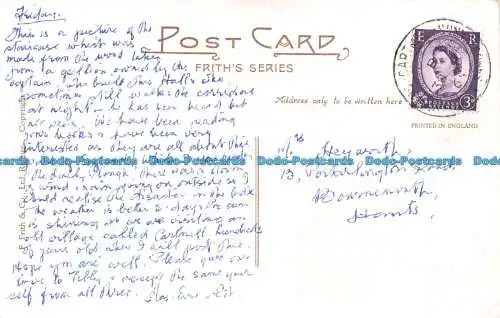 Friday.
This is a picture of the
staircase which was
made from the wood taken
from a galleon owned by the
captain who build this Hall. She
sometime still walks the corridors
at night – he has been heard but
not seen. We have been reading
your books & have been very
interested as they are all about this
There was a storm
wind & rain going on outside so I
could realise the in the book
The weather is better to-day the sun
is shining so we are visiting an
old village called Cartmell hundreds
of years old when I will post this.
Hope you are well. Please give our
love to Tilly & accept the same your
self from all three.
POST CARD
FRITH'S SERIES
Address only to be written here
E R
POSTAGE
REVENUE
3D
PRINTED IN ENGLAND
F. Frith & Co. Ltd. Reigate. Copyright
Heyworth,
Road
Bournemouth,
Hants.
Dodo-Postcards Dodo-Postcards Dodo-Postcards Dodo-Postcards Dodo-Postcards